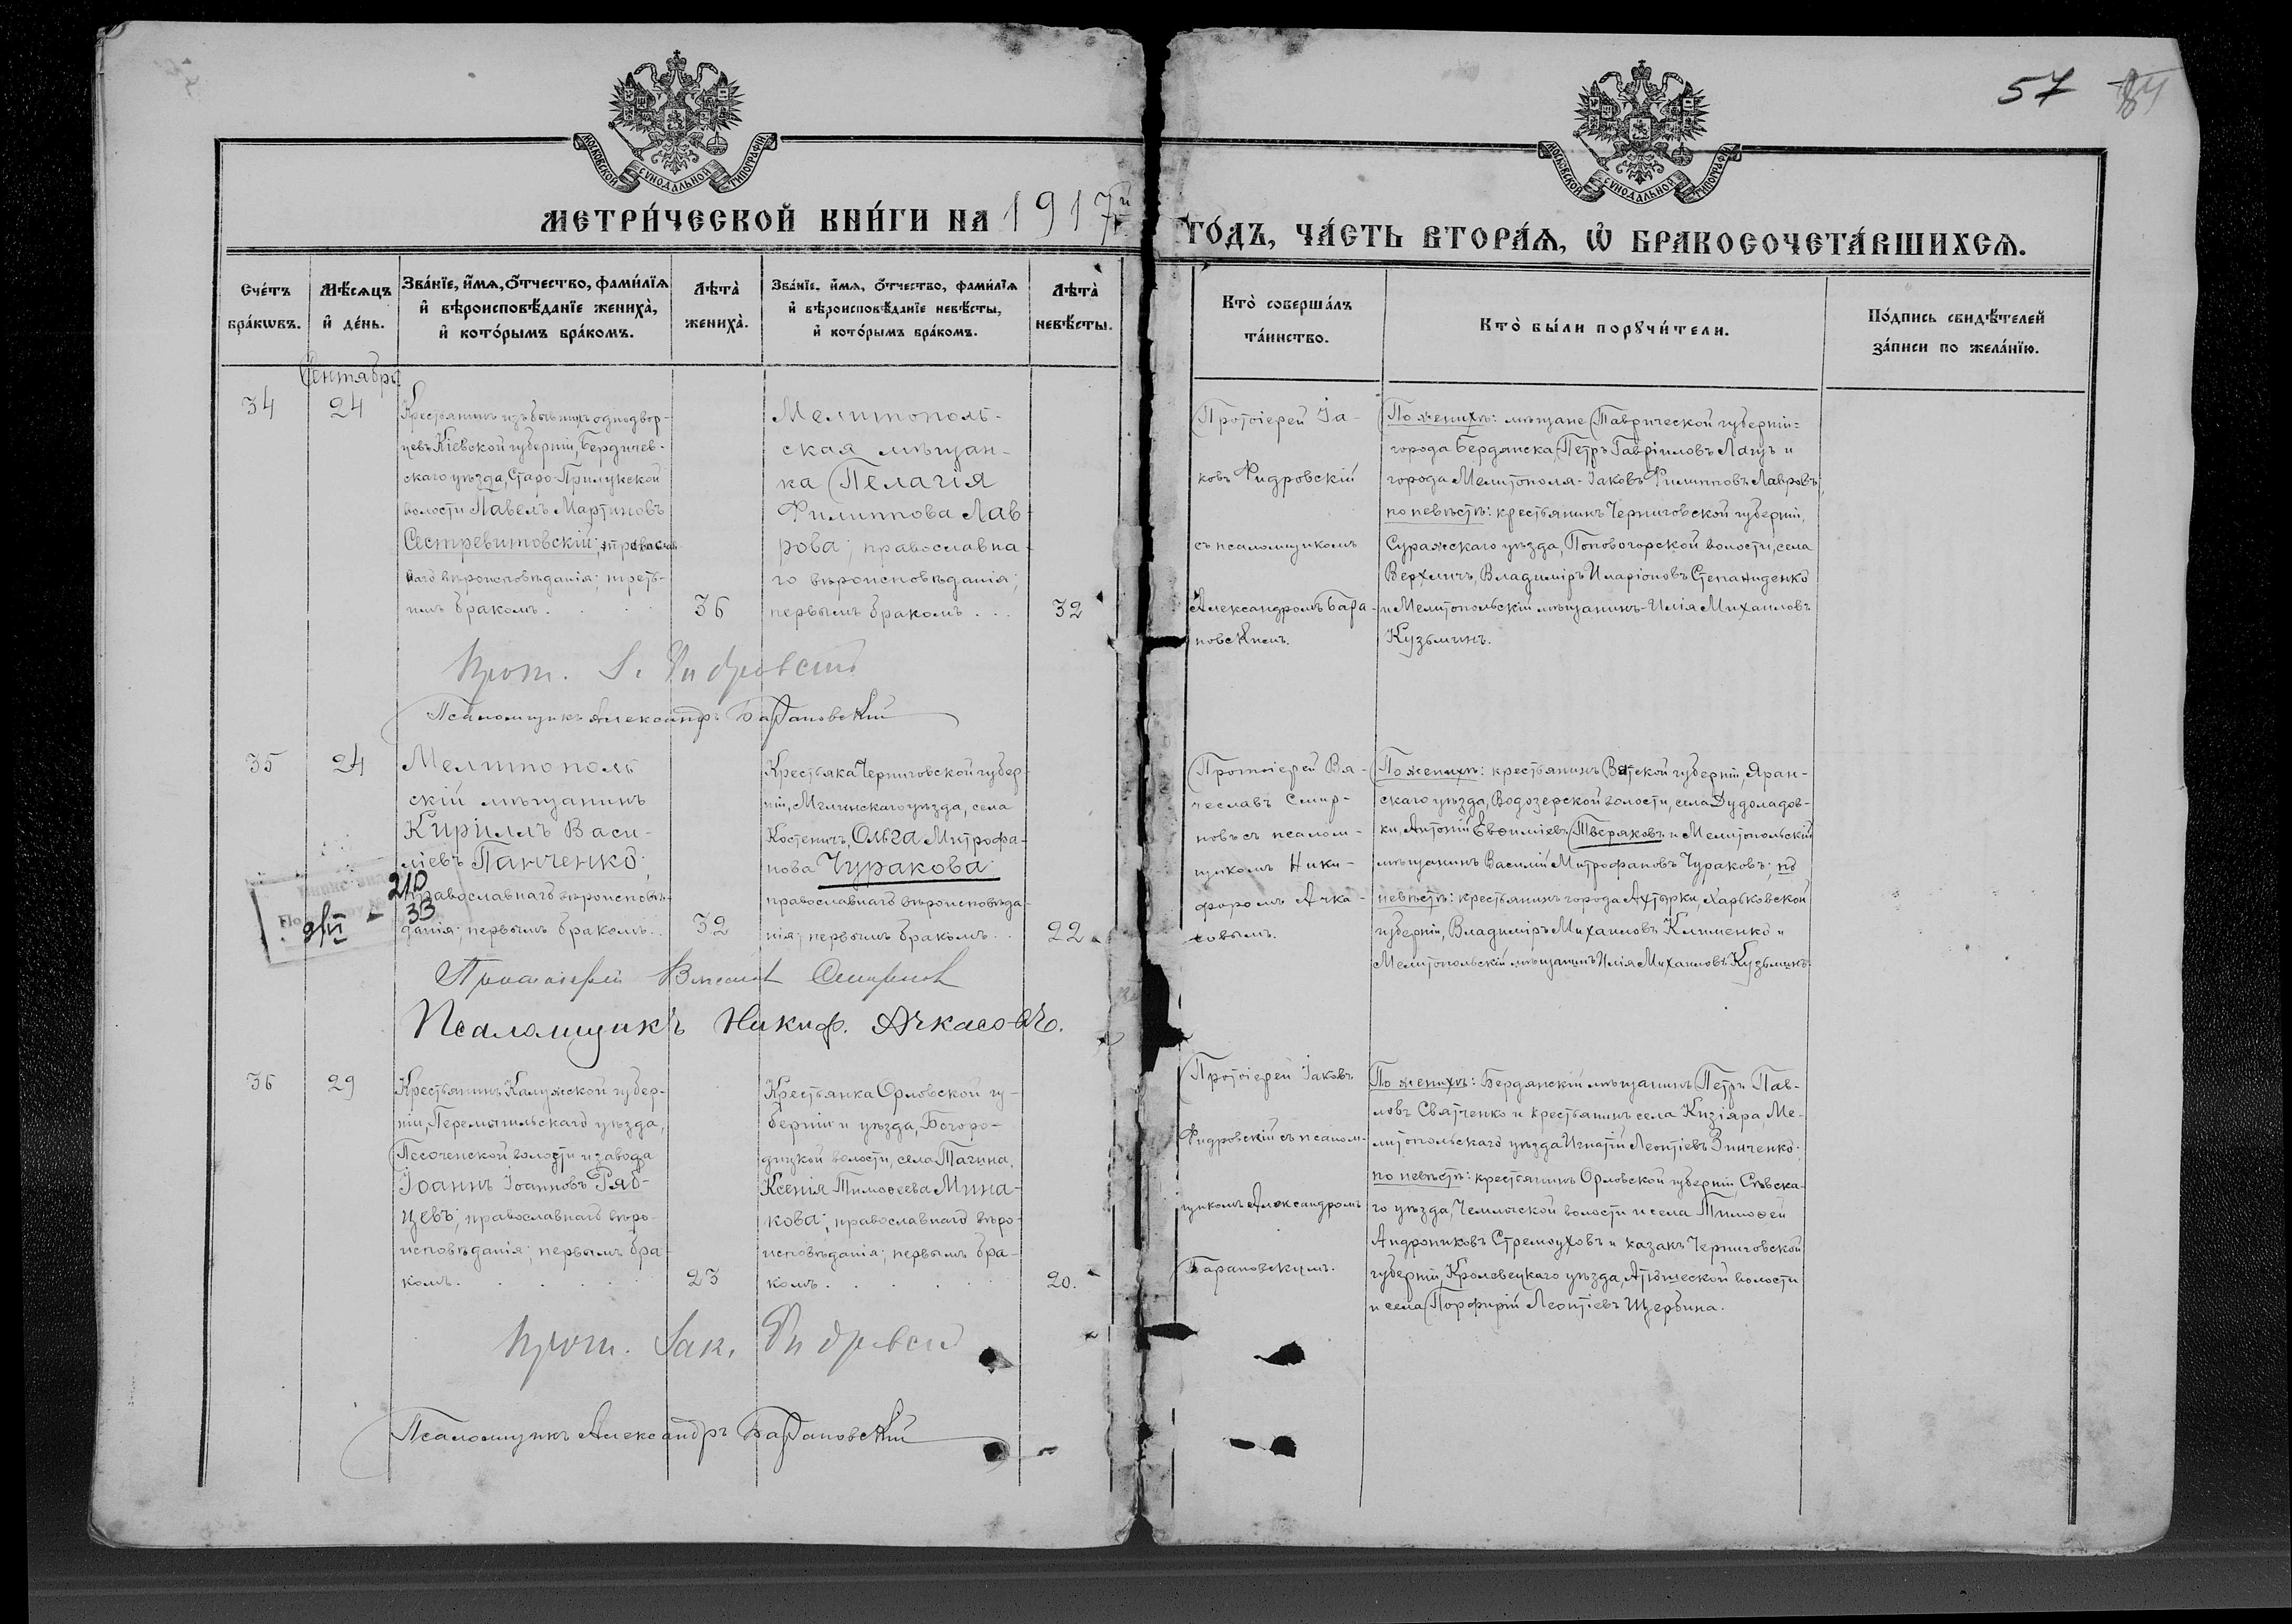 57
МОСКОВСКОЙ СѴНОДАЛЬНОЙ ТИПОГРАФІИ
МОСКОВСКОЙ СѴНОДАЛЬНОЙ ТИПОГРАФІИ
МЕТРИ́ЧЕСКОЙ КНИ́ГИ НА 1917й
ГО́ДЪ, ЧА́СТЬ ВТОРА́Ѧ, Ѽ БРАКОСОЧЕТА́ВШИХСѦ.
Сче́тъ бра́кωвъ.
Мѣ́сяцъ и҆ де́нь.
Зва́нїе, и҆́мя, о҆́тчество, фами́лїя
и҆ вѣроисповѣ́данїе жениха̀,
и҆ кото́рымъ бра́комъ.
Лѣта̀ жениха̀.
Зва́нїе, и҆́мя, о҆́тчество, фами́лїя
и҆ вѣроисповѣ́данїе невѣ́сты,
и҆ кото́рымъ бра́комъ.
Лѣта̀ невѣ́сты.
Кто̀ соверша́лъ
та́инство.
Кто̀ бы́ли порꙋчи́тели.
По́дпись свидѣ́телей
за́писи по жела́нїю.
Сентябрь
34
24
Крестьянинъ изъ бывшихъ однодвор-
цевъ Кіевской губерніи, Бердичев-
скаго уѣзда, Старо-Прилукской
волости Павелъ Мартиновъ
Сестревитовскій; православ-
наго вѣроисповѣданія; треть-
имъ бракомъ.
36
Мелитополь-
ская мѣщан-
ка Пелагія
Филиппова Лав-
рова; православна-
го вѣроисповѣданія;
первымъ бракомъ...
32
Протоіерей Іа-
ковъ Фидровскій
съ псаломщикомъ
Александромъ Бара-
новскимъ.
По женихѣ: мѣщане Таврической губерніи=
города Бердянска-Петръ Гавріиловъ Лащъ и
города Мелитополя-Іаковъ Филипповъ Лавровъ;
по невѣстѣ: крестьянинъ Черниговской губерніи,
Суражскаго уѣзда, Поповогорской волости, села
Верхличъ, Владиміръ Иларіоновъ Степаниденко
и Мелитопольскій мѣщанинъ-Илія Михаиловъ
Кузьминъ.
Прот. І. Фидровскій
Псаломщикъ Александръ Барановскій
35
24
Мелитополь
скій мѣщанинъ
Кириллъ Васи-
ліевъ Панченко;
православнаго вѣроисповѣ-
данія; первымъ бракомъ..
32
210
33
Крестьяка Черниговской губер-
ніи, Мглинскаго уѣзда, села
Костеничъ, Ольга Митрофа-
нова Чуракова
православнаго вѣроисповѣда-
нія; первымъ бракомъ..
22
Протоіерей Вя-
чеславъ Смир-
новъ съ псалом-
щикомъ Ники-
форомъ Ачка-
совымъ.
По женихѣ: крестьянинъ Вятской губерніи, Яран-
скаго уѣзда, Водозерской волости, села Дудоладов-
ки, Антоній Евѳиміевъ Тверяковъ и Мелитопольскій
мѣщанинъ Василій Митрофановъ Чураковъ; по
невѣстѣ: крестьянинъ города Ахтырки, Харьковской
губерніи, Владиміръ Михаиловъ Клименко и
Мелитопольскій мѣщанинъ Илія Михаиловъ Кузьминъ.
Протоіерей Вячеслав Смирнов
Псаломщикъ Никиф. Ачкасовъ.
36
29
Крестьянинъ Калужской губер-
ніи, Перемышльскаго уѣзда,
Песоченской волости и завода
Іоаннъ Іоанновъ Ряб-
цевъ; православнаго вѣро-
исповѣданія; первымъ бра-
комъ.
23
Крестьянка Орловской гу-
берніи и уѣзда, Богоро-
дицкой волости, села Тагина,
Ксенія Тимоѳеева Мина-
кова; православнаго вѣро-
исповѣданія; первымъ бра-
комъ.
20.
Протоіерей Іаковъ
Фидровскій съ псалом-
щикомъ Александромъ
Барановскимъ.
По женихѣ: Бердянскій мѣщанинъ Петръ Пав-
ловъ Святченко и крестьянинъ села Кизіяра, Ме-
литопольскаго уѣзда Игнатій Леонтіевъ Зинченко;
по невѣстѣ: крестьянинъ Орловской губерніи, Сѣвска-
го уѣзда, Чемлыжской волости и села Тимоѳей
Андрониковъ Стремоуховъ и казакъ Черниговской
губерніи, Кролевецкаго уѣзда, Атюшеской волости
и села Порфирій Леонтіевъ Щербина.
Прот. Іак. Фидровскій
Псаломщикъ Александръ Барановскій